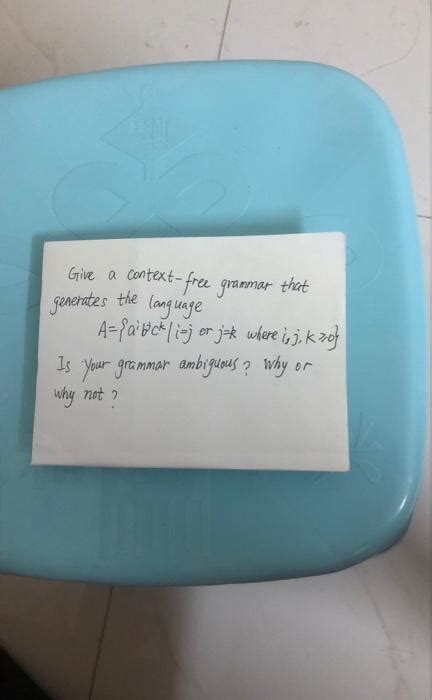 Give a context-free grammar that
generates the language
A={aⁱbʲcᵏ | i=j or j=k where i, j, k ≥ 0}
Is your grammar ambiguous? Why or
why not?